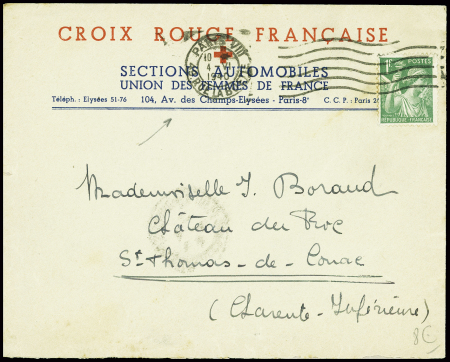 CROIX ROUGE FRANÇAISE
PARIS VIII
SECTIONS AUTOMOBILES
UNION DES FEMMES DE FRANCE
Téléph. : Elysées 51-76 104, Av. des Champs-Elysées - Paris-8e C. C. P. : Paris
1F POSTES
REPUBLIQUE FRANÇAISE
Mademoiselle J. Boraud
Château du Roc
St Thomas-de-Conac
(Charente-Inférieure)
8€